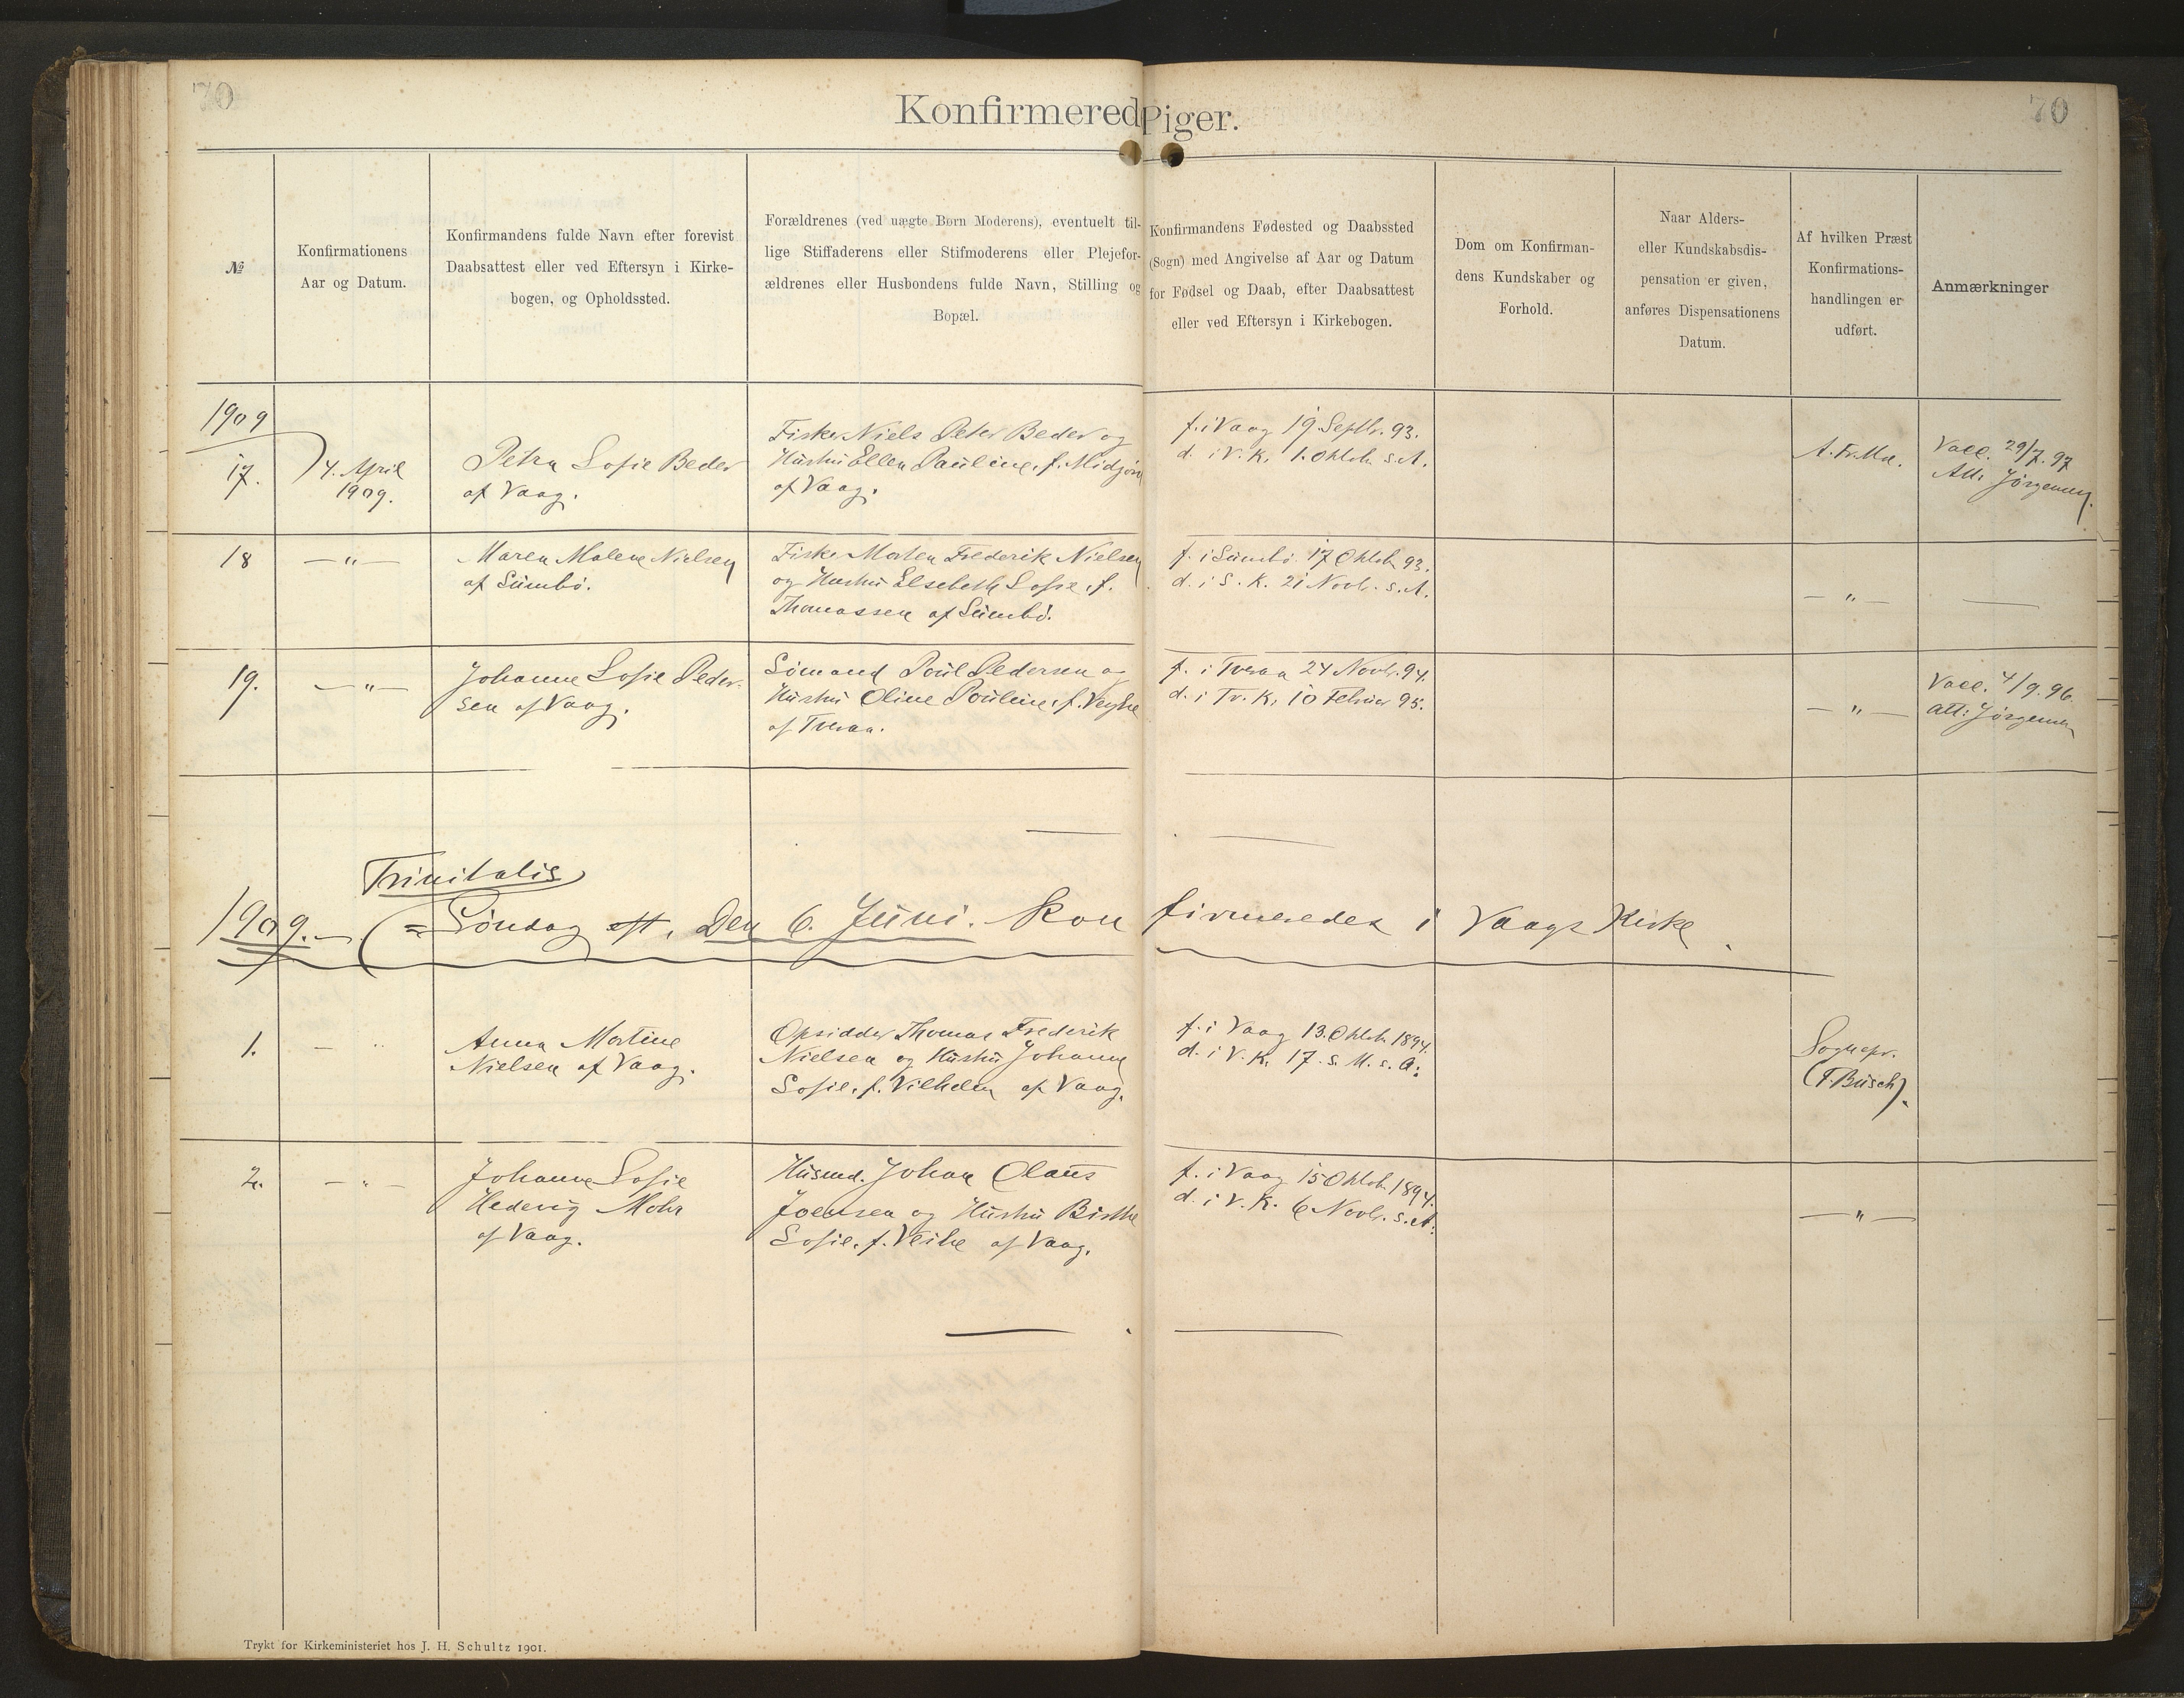 70
Konfirmered Piger.
70
№
Konfirmationens
Aar og Datum.
Konfirmandens fulde Navn efter forevist
Daabsattest eller ved Eftersyn i Kirke-
bogen, og Opholdssted.
Forældrenes (ved uægte Børn Moderens), eventuelt til-
lige Stiffaderens eller Stifmoderens eller Plejefor-
ældrenes eller Husbondens fulde Navn, Stilling og
Bopæl.
Konfirmandens Fødested og Daabssted
(Sogn) med Angivelse af Aar og Datum
for Fødsel og Daab, efter Daabsattest
eller ved Eftersyn i Kirkebogen.
Dom om Konfirman-
dens Kundskaber og
Forhold.
Naar Alders-
eller Kundskabsdis-
pensation er given,
anføres Dispensationens
Datum.
Af hvilken Præst
Konfirmations-
handlingen er
udført.
Anmærkninger
1909
17.
4. April
1909.
Petra Sofie Beder
af Vaag.
Fisker Niels Peter Beder og
Hustru Ellen Pauline, f. Midjord
af Vaag.
f. i Vaag 19. Septbr. 93.
d. i V. K. 1. Oktob. s. A.
A. Fr. M.
Vacc. 29/7. 97
Att: Jørgensen.
18
— " —
Maren Malene Nielsen
af Sumbø.
Fisker Morten Frederik Nielsen
og Hustru Elsebeth Sofie, f.
Thomassen af Sumbø.
f. i Sumbø 17 Oktob. 93.
d. i S. K. 21 Novb. s. A.
— " —
19.
— " —
Johanne Sofie Peder-
sen af Vaag.
Sømand Poul Pedersen og
Hustru Oline Pouline, f. Veyhe
af Tveraa.
f. i Tveraa 24 Novbr. 94.
d. i Tv. K. 10 Februar 95.
— " —
Vacc. 4/9. 96.
Att: Jørgensen
Trinitatis
1909. — (= Søndag eft. Den 6. Juni. Konfirmeredes i Vaags Kirke.
1.
— "
Anna Mortine
Nielsen af Vaag.
Opsidder Thomas Frederik
Nielsen og Hustru Johanne
Sofie, f. Vilhelm af Vaag.
f. i Vaag 13. Oktob. 1894.
d. i V. K. 17. s. M. s. A.
Sognepr.
(F. Busch).
2.
— " —
Johanne Sofie
Hedevig Mohr
af Vaag.
Husmd. Johan Olaus
Joensen og Hustru Birthe
Sofie, f. Veihe af Vaag.
f. i Vaag 15 Oktob. 1894.
d. i V. K. 6 Novb. s. A.
— " —
Trykt for Kirkeministeriet hos J. H. Schultz 1901.